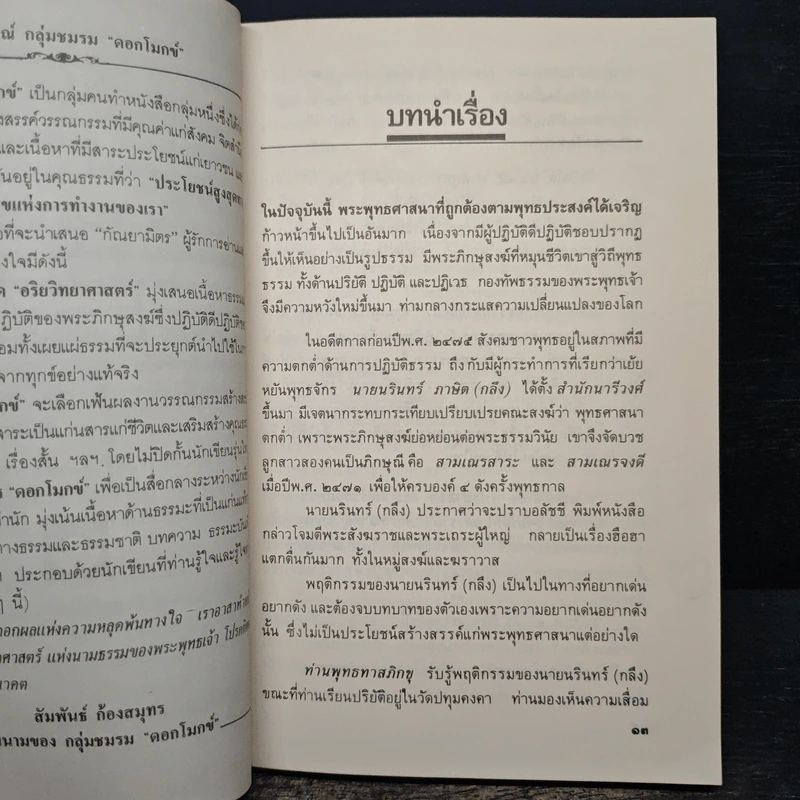 ณ์ กลุ่มชมรม "ดอกโมกข์"
กข์" เป็นกลุ่มคนทำหนังสือกลุ่มหนึ่งซึ่งได้
งสรรค์วรรณกรรมที่มีคุณค่าแก่สังคม จิตสำนึ
และเนื้อหาที่มีสาระประโยชน์แก่เยาวชน
ันอยู่ในคุณธรรมที่ว่า "ประโยชน์สูงสุด
ขแห่งการทำงานของเรา"
อที่จะนำเสนอ "กัณยามิตร" ผู้รักการอ่าน
งใจมีดังนี้
ด "อริยวิทยาศาสตร์" มุ่งเสนอเนื้อหาธรรม
ฏิบัติของพระภิกษุสงฆ์ซึ่งปฏิบัติดีปฏิบัติช
อมทั้งเผยแผ่ธรรมที่จะประยุกต์นำไปใช้ใน
จากทุกข์อย่างแท้จริง
กข์" จะเลือกเฟ้นผลงานวรรณกรรมสร้างส
าระเป็นแก่นสารแก่ชีวิตและเสริมสร้างคุณ
เรื่องสั้น ฯลฯ. โดยไม่ปิดกั้นนักเขียนรุ่นใ
ร "ดอกโมกข์" เพื่อเป็นสื่อกลางระหว่างนัก
ำนัก มุ่งเน้นเนื้อหาด้านธรรมะที่เป็นแก่นแท้
ทางธรรมและธรรมชาติ บทความ ธรรมะบัน
ๆ ประกอบด้วยนักเขียนที่ท่านรู้ใจและรู้
ๆ นี้)
ดอกผลแห่งความหลุดพ้นทางใจ เราอาสาทำ
าศาสตร์ แห่งนามธรรมของพระพุทธเจ้า โปรด
นาคต
สัมพันธ์ ก้องสมุทร
นนามของ กลุ่มชมรม "ดอกโมกข์"
บทนำเรื่อง
ในปัจจุบันนี้ พระพุทธศาสนาที่ถูกต้องตามพุทธประสงค์ได้เจริญ
ก้าวหน้าขึ้นไปเป็นอันมาก เนื่องจากมีผู้ปฏิบัติดีปฏิบัติชอบปรากฏ
ขึ้นให้เห็นอย่างเป็นรูปธรรม มีพระภิกษุสงฆ์ที่หมุนชีวิตเขาสู่วิถีพุทธ
ธรรม ทั้งด้านปริยัติ ปฏิบัติ และปฏิเวธ กองทัพธรรมของพระพุทธเจ้า
จึงมีความหวังใหม่ขึ้นมา ท่ามกลางกระแสความเปลี่ยนแปลงของโลก
ในอดีตกาลก่อนปีพ.ศ. ๒๔๗๕ สังคมชาวพุทธอยู่ในสภาพที่มี
ความตกต่ำด้านการปฏิบัติธรรม ถึง กับมีผู้กระทำการที่เรียกว่าเย้ย
หยันพุทธจักร นายนรินทร์ ภาษิต (กลึง) ได้ตั้ง สำนักนารีวงศ์
ขึ้นมา มีเจตนากระทบกระเทียบเปรียบเปรยคณะสงฆ์ว่า พุทธศาสนา
ตกต่ำ เพราะพระภิกษุสงฆ์ย่อหย่อนต่อพระธรรมวินัย เขาจึงจัดบวช
ลูกสาวสองคนเป็นภิกษุณี คือ สามเณรสาระ และ สามเณรจงดี
เมื่อปีพ.ศ. ๒๔๗๑ เพื่อให้ครบองค์ ๔ ดังครั้งพุทธกาล
นายนรินทร์ (กลึง) ประกาศว่าจะปราบอลัชชี พิมพ์หนังสือ
กล่าวโจมตีพระสังฆราชและพระเถระผู้ใหญ่ กลายเป็นเรื่องฮือฮา
แตกตื่นกันมาก ทั้งในหมู่สงฆ์และฆราวาส
พฤติกรรมของนายนรินทร์ (กลึง) เป็นไปในทางที่อยากเด่น
อยากดัง และต้องจบบทบาทของตัวเองเพราะความอยากเด่นอยากดัง
นั้น ซึ่งไม่เป็นประโยชน์สร้างสรรค์แก่พระพุทธศาสนาแต่อย่างใด
ท่านพุทธทาสภิกขุ รับรู้พฤติกรรมของนายนรินทร์ (กลึง)
ขณะที่ท่านเรียนปริยัติอยู่ในวัดปทุมคงคา ท่านมองเห็นความเสื่อม
๑๓